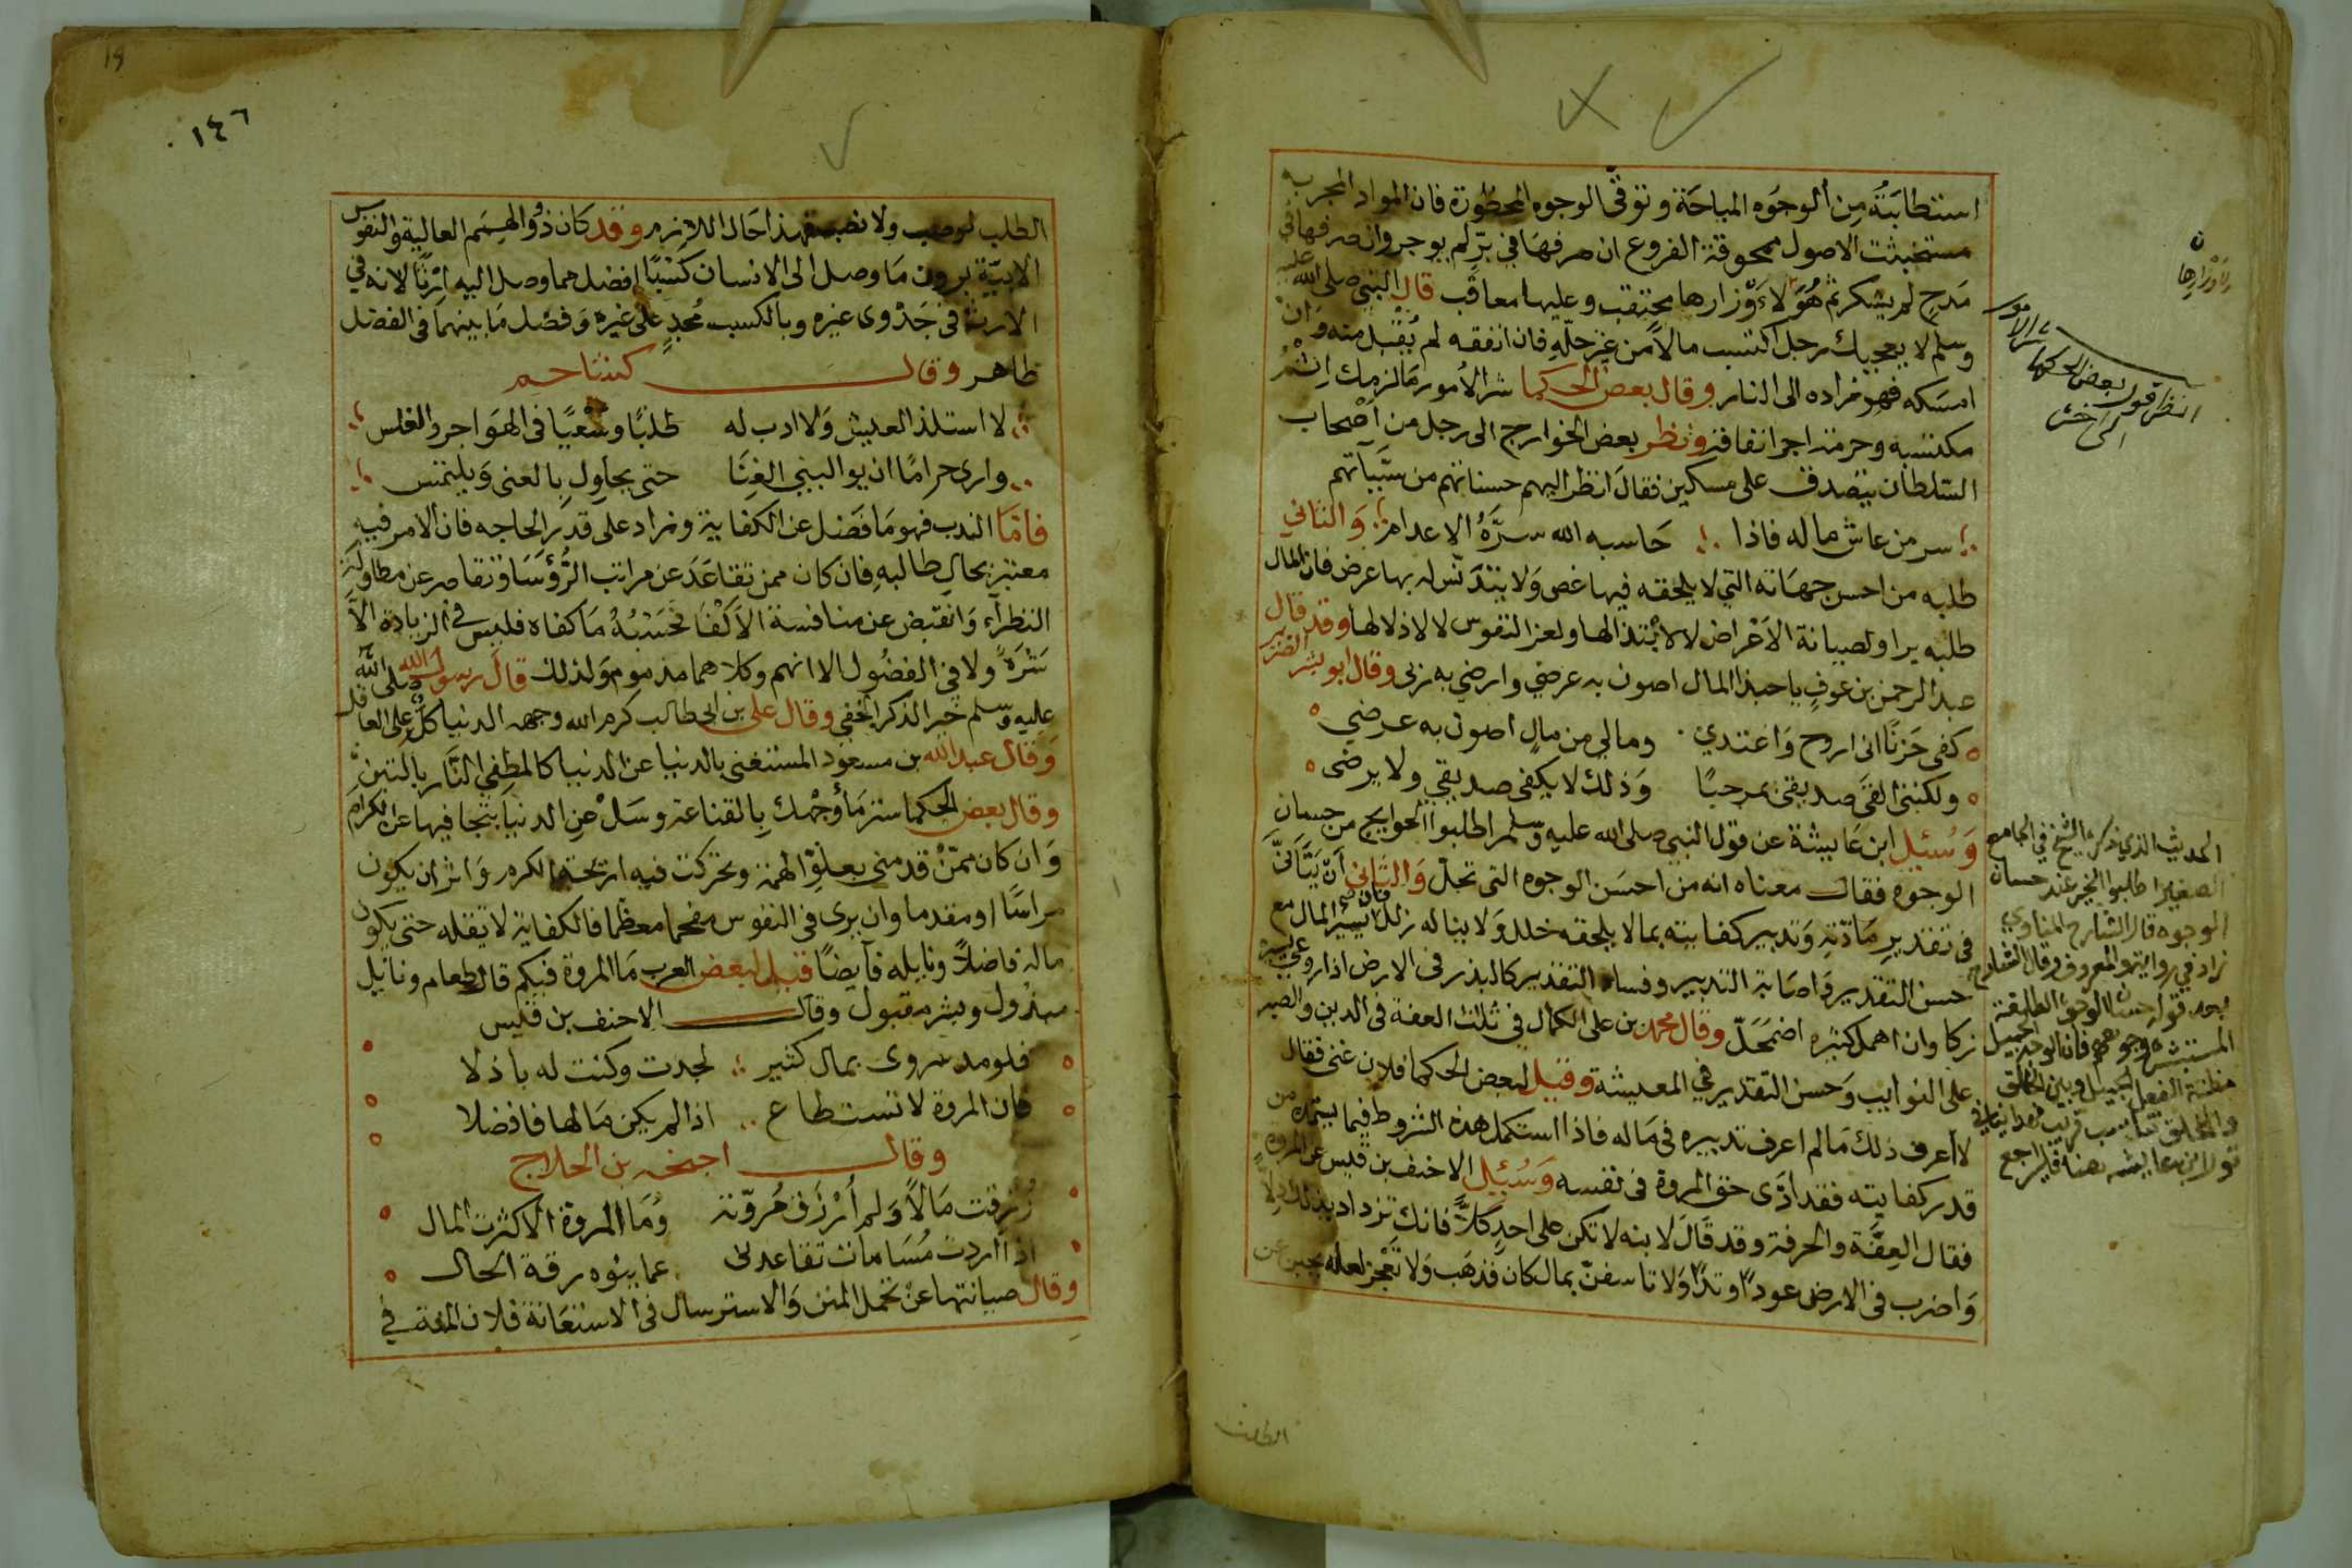 استطابته من الوجوه المباحة وتوقى الوجوه المحظورة فان المواد المحرمة
مستخبثت الاصول ممحوقة الفروع ان صرفها في بر لم يوجر وان صرفها في
مدح لم يشكر ثم هؤلاء وزارها محتقب وعليها معاقب قال النبي صلى الله عليه
وسلم لا يعجبك رجل اكتسب مالا من غير حله فان انفقه لم يقبل منه وان
امسكه فهو زاده الى النار وقال بعض الحكما شر الأمور ما لزمك اثم
مكسبه وحرمت اجر انفاقه ونظر بعض الخوارج الى رجل من اصحاب
السلطان يتصدق على مسكين فقال انظر اليهم حسناتهم من سيآتهم
سر من عاش ماله فاذا حاسبه الله سره الاعدام والثاني
طلبه من احسن جهاته التي لا يلحقه فيها غض ولا يتدنس له بها عرض فان المال
طلبه يراد لصيانة الاعراض لا لابتذالها ولعز النفوس لا لاذلالها وقد قال
عبد الرحمن بن عوف يا حبذا المال اصون به عرضي وارضي به ربي وقال ابو بشر الضرير
كفى حزنا انى اروح واغتدي ومالي من مال اصون به عرضي
ولكننى القى صديقى بمرحبا وذلك لا يكفى صديقي ولا يرضى
وسئل ابن عايشة عن قول النبي صلى الله عليه وسلم اطلبوا الحوايج من حسان
الوجوه فقال معناه انه من احسن الوجوه التى تحل والثاني أن يتأنى
فى تقدير مادته وتدبير كفايته بما لا يلحقه خلل ولا يناله زلل فان يسير المال مع
حسن التقدير واصابة التدبير وفساد التقدير كالبذر فى الارض اذا روعى يسيره
زكا وان اهمل كثيره اضمحل وقال محمد بن على الكمال في ثلث العفة فى الدين والصبر
على النوايب وحسن التقدير في المعيشة وقيل لبعض الحكما فلان غنى فقال
لا أعرف ذلك مالم اعرف تدبيره فى ماله فاذا استكمل هذه الشروط فيما يستمده من
قدر كفايته فقد ادى حق المروة فى نفسه وسئل الاحنف بن قيس عن المروة
فقال العفة والحرفة وقد قال لابنه لا تكن على احد كلا فانك تزداد بذلك ذلا
واضرب فى الارض عودا وتدا ولا تاسفن بمال كان فذهب ولا تعجز لعله
الطلب
ن
انظر قول بعض الحكما شر الامور
الى اخره
الحديث الذي ذكره الشيخ في الجامع
الصغير اطلبوا الخير عند حسان
الوجوه قال الشارح المناوي
زاد في رواية والمعروف وقال الشارح
بعد قوله حسان الوجوه الطليقة
المستبشرة وجوههم فان الوجه الجميل
مظنة الفعل الجميل وبين الخلق
والخلق تناسب قريب
قول ابن عايشه هنا فليراجع
19
١٤٦
الطلب ولا نصب فهذا حال اللازم وقد كان ذو الهمم العالية والنفوس
الابية يرون ما وصل الى الانسان كسبا افضل مما وصل اليه ارثا لانه في
الارث فى جدوى غيره وبالكسب مجد على غيره وفضل ما بينهما فى الفضل
ظاهر وقال كشاجم
لا استلذ العيش ولا ادب له طلبا وسعيا فى الهواجر والغلس
وارى حراما ان يواليني الغنا حتى يحاول بالعنى ويلتمس
فاما الندب فهو ما فضل عن الكفاية وزاد على قدر الحاجه فان الامر فيه
معتبر بحال طالبه فان كان ممن تقاعد عن مراتب الرؤسا وتقاصر عن مطاولة
النظرآء وانقبض عن منافسة الاكفا فحسبه ما كفاه فليس في الزيادة الا
شره ولا فى الفضول الا نهم وكلاهما مذموم ولذلك قال رسول الله صلى الله
عليه وسلم خير الذكر الخفي وقال علي بن ابى طالب كرم الله وجهه الدنيا كل على العاقل
وقال عبد الله بن مسعود المستغنى بالدنيا عن الدنيا كالمطفي النار بالتبن
وقال بعض الحكما استر ما وجهك بالقناعة وسل عن الدنيا بتجافيها عن الكرام
وان كان ممن قد منى بعلو الهمة وتحركت فيه اريحية الكرم واثر ان يكون
راسا او مقدما وان يرى فى النفوس مفخما معظما فالكفاية لا تقله حتى يكون
ماله فاضلا ونايله فآيضا قيل لبعض العرب ما المروة فيكم قال طعام ونايل
مبذول وبشر مقبول وقال الاحنف بن قيس
فلو مد سروى بمال كثير لجدت وكنت له باذلا
فان المروة لا تستطاع اذا لم يكن مالها فاضلا
وقال احيحه بن الحلاج
رزقت مالا ولم أرزق مروته وما المروة الا كثرت المال
اذا اردت مسامات تقاعدنى عما ينوه رقة الحال
وقال صيانتها عن تحمل المنن والاسترسال فى الاستعانة فلان المنة في